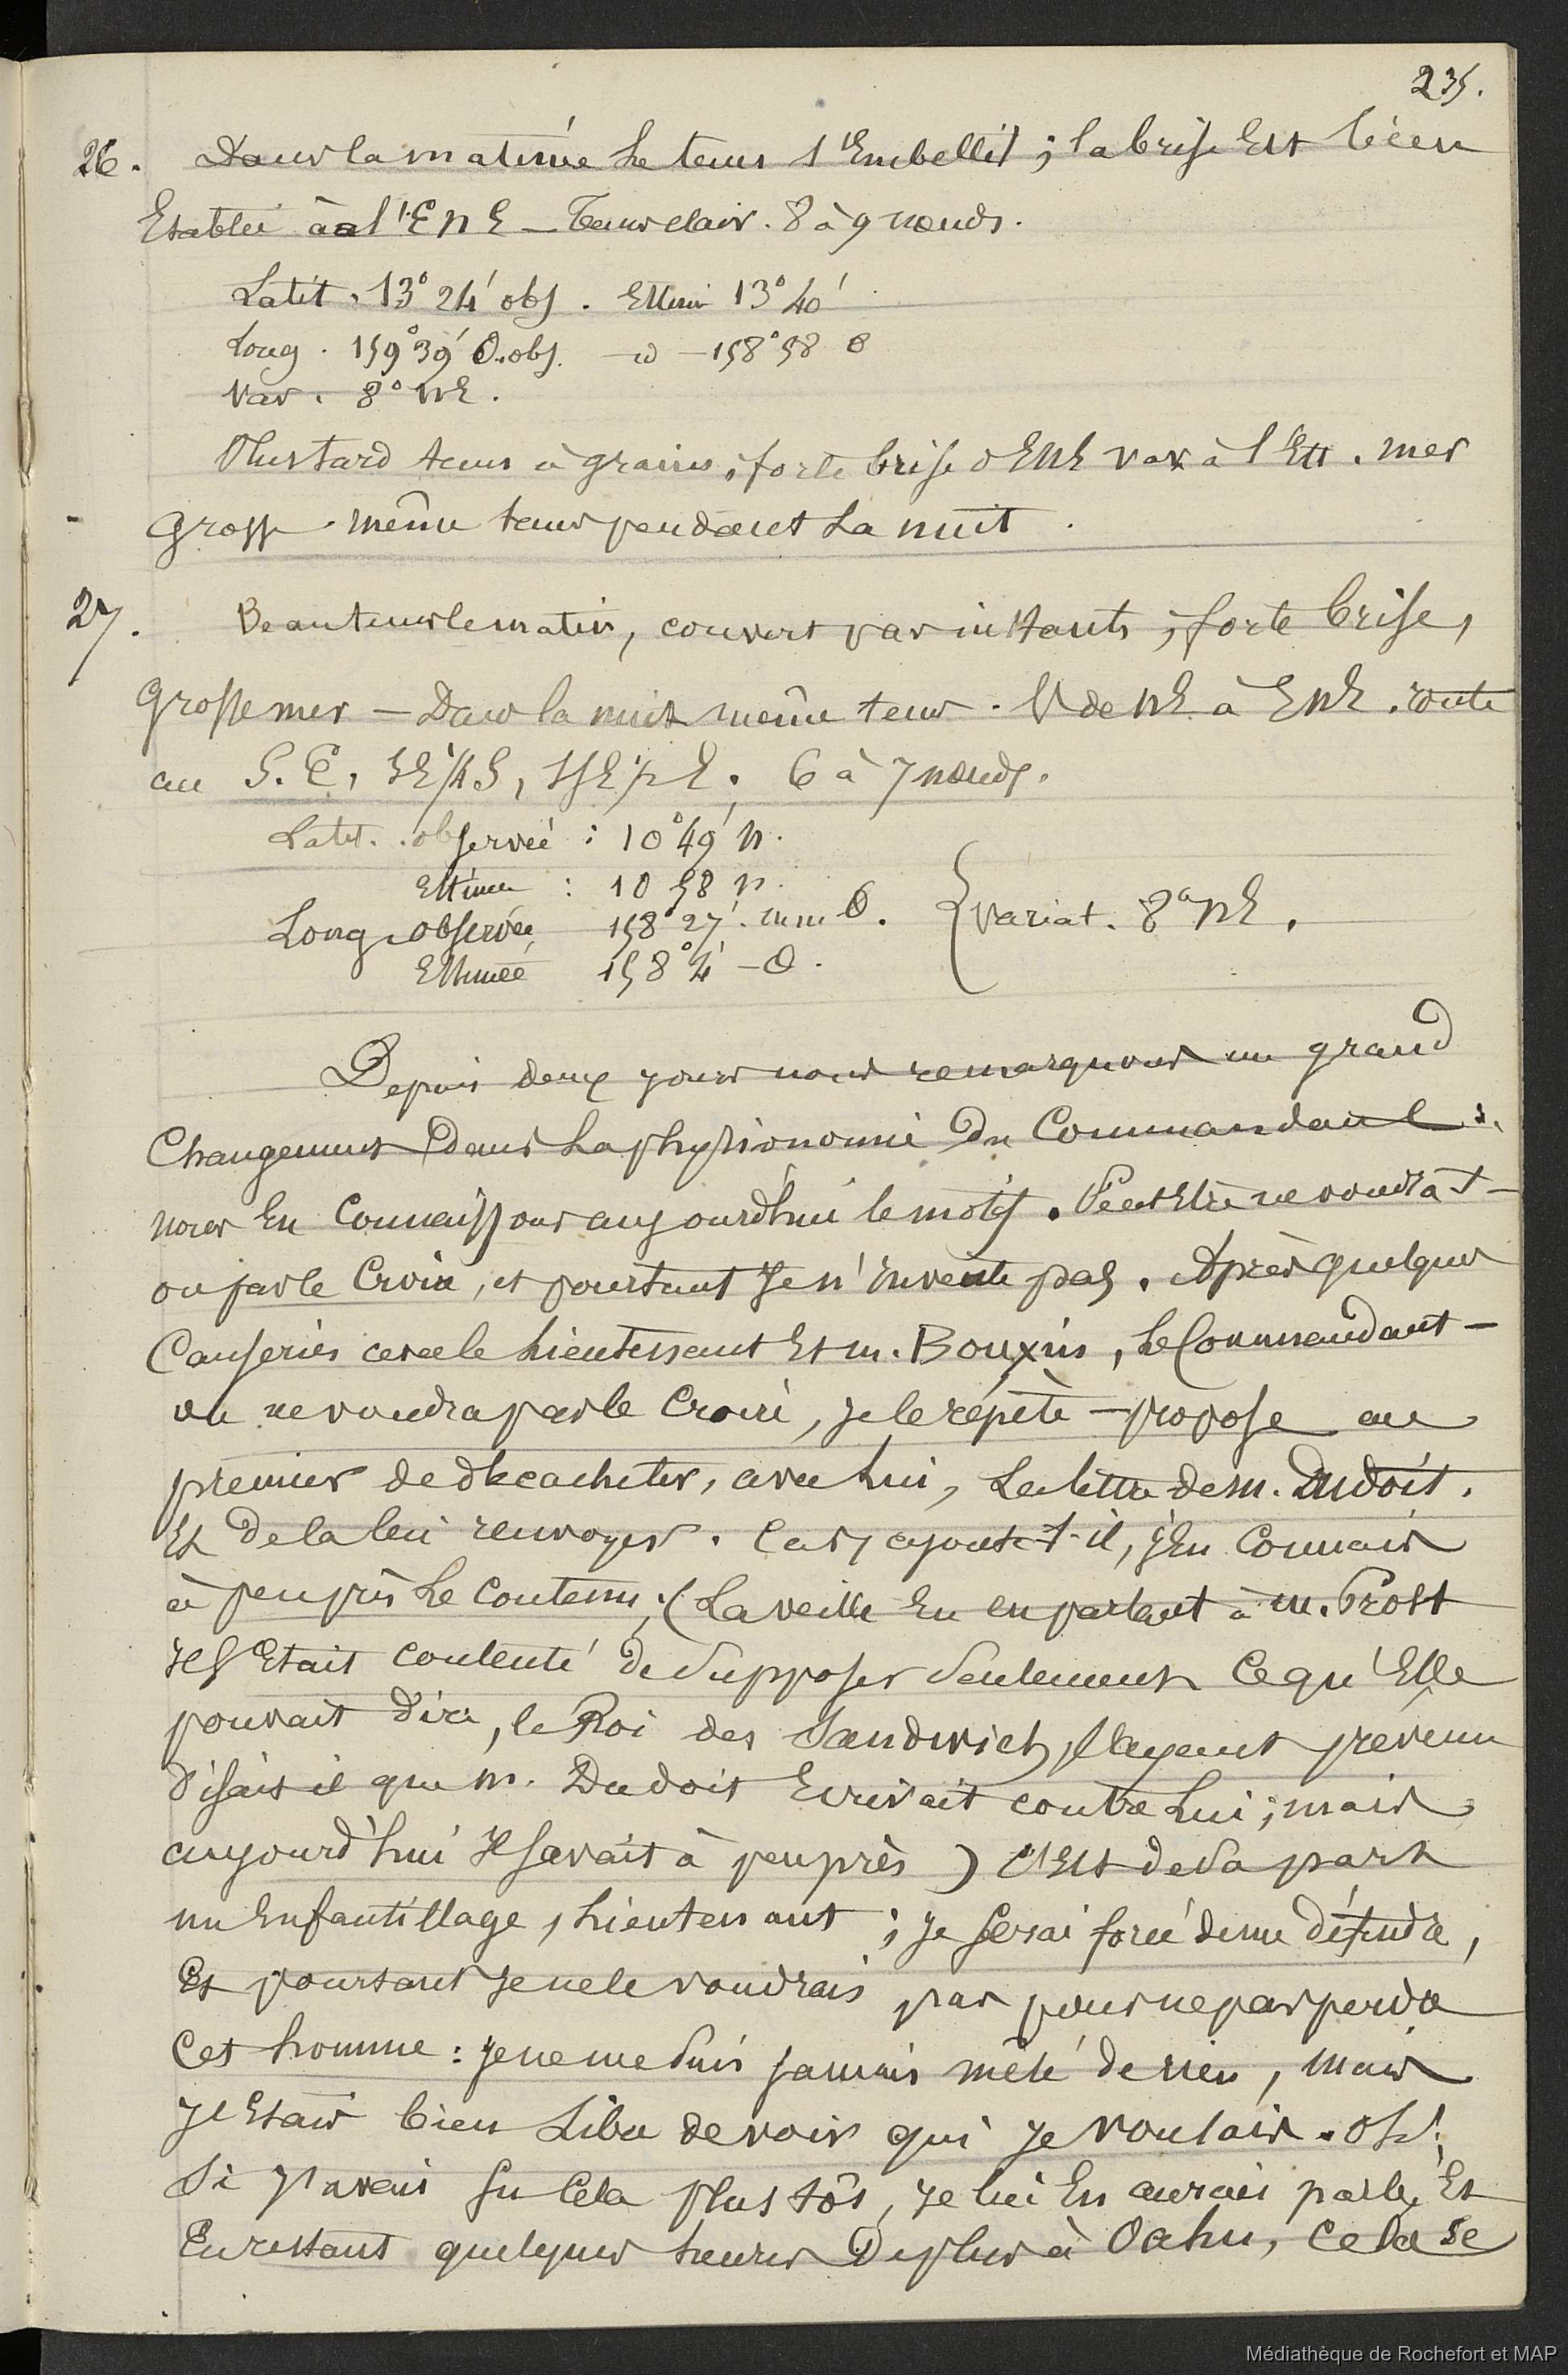 235.
26. Dans la matinée le tems s'Embellit ; la brise Est bien
Etablie à l'ENE – Tems clair. 8 à 9 nœuds.
Latit. 13° 24' obs. Estimé 13° 40'
Long. 159° 39' O. obs. – id – 158° 58 O
Var. 8° NE.
Plus tard tems à grains, forte brise d'ENE var à l'Est. mer
grosse. même tems pendant la nuit.
27. Beau tems le matin, couvert par instants ; forte brise,
grosse mer – Dans la nuit même tems. V de NE à ENE. route
au S.E, SE 1/4 S, SSE 1/2 E. 6 à 7 nœuds.
Latit. observée : 10° 49' N.
Estimée : 10 58 N.
Long. observée 158° 27' O. { variat. 8° NE.
Estimée 158° 4' – O.
Depuis deux jours nous remarquons un grand
Changement Dans la physionomie Du Commandant :
nous En Connaissons aujourd'hui le motif. Peut Etre ne voudra-t-
on pas le Croire, et pourtant Je n'invente pas. Après quelques
Causeries avec le Lieutenant Et m. Bouxin, Le Commandant –
on ne voudra pas le Croire, je le répète – propose au
premier de décacheter, avec lui, la lettre de m. Dudoit.
Et De la lui renvoyer. Car, ajouta-t-il, j'En Connais
à peu près Le Contenu ; (La veille En en parlant à m. Prost
Il s'Etait contenté de Supposer Seulement Ce qu'Elle
pouvait dire, le Roi des Sandwich, l'ayant prévenu
disait il que m. Dudoit Ecrivait contre lui ; mais
aujourd'hui Il savait à peu près) C'Est de Sa part
un Enfantillage, Lieutenant ; je serai forcé de me défendre,
Et pourtant Je ne le voudrais pas pour ne pas perdre
Cet homme : je ne me Suis jamais mêlé de rien, mais
J'Etais bien Libre de voir qui je voulais. Oh !
Si j'avais su Cela plus tôt, je lui En aurais parlé, Et
En restant quelques heures De plus à Oahu, Cela se
Médiathèque de Rochefort et MAP